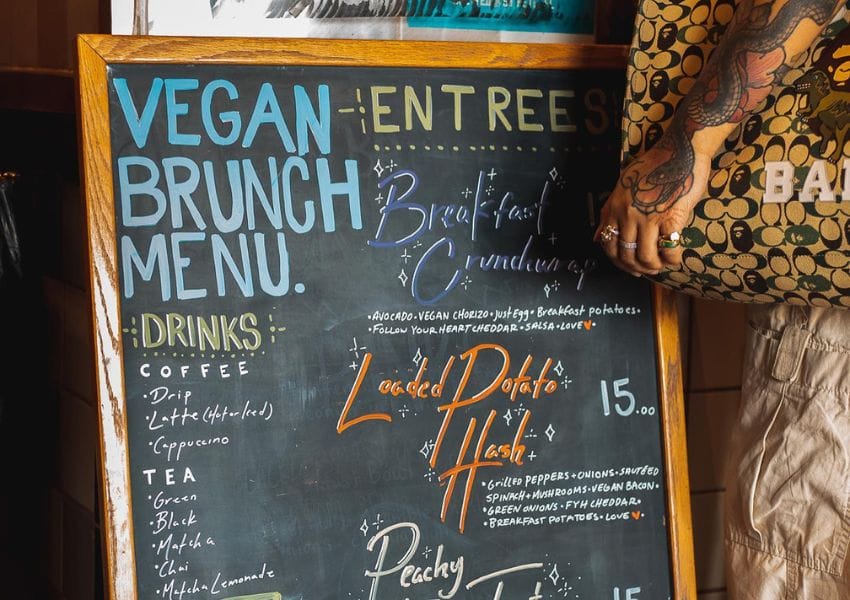 VEGAN
BRUNCH
MENU.
DRINKS
COFFEE
•Drip
•Latte (Hot or Iced)
•Cappuccino
TEA
•Green
•Black
•Matcha
•Chai
•Matcha Lemonade
ENTREES
Breakfast
Crunchwrap
•AVOCADO•VEGAN CHORIZO•JustEgg•Breakfast potatoes•
•FOLLOW YOUR HEART CHEDDAR•SALSA•LOVE
Loaded Potato
Hash
15.00
•GRILLED PEPPERS+ONIONS•SAUTÉED
SPINACH+MUSHROOMS•VEGAN BACON•
•GREEN ONIONS•FYH CHEDDAR•
•BREAKFAST POTATOES•LOVE
Peachy
15